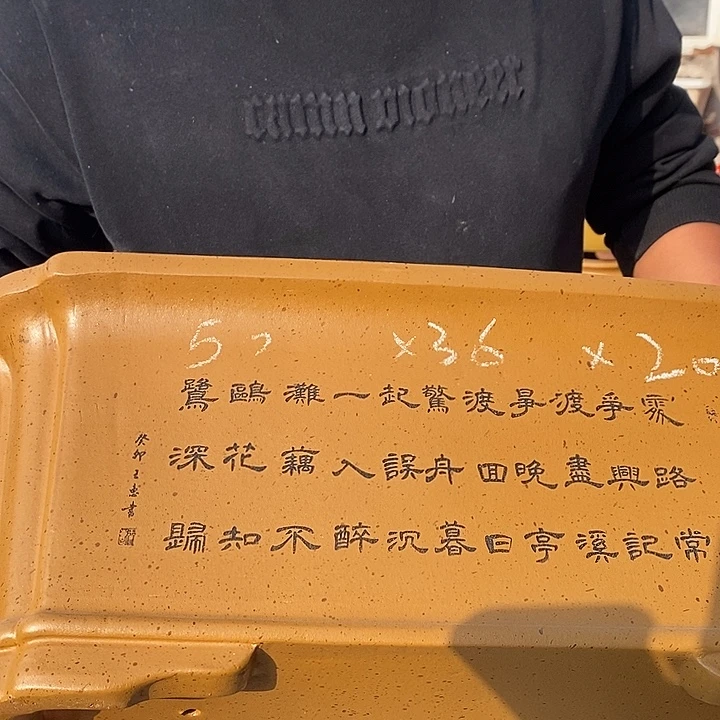 pioneer
5 ×36 ×20
處爭渡爭渡驚起一灘鷗鷺
路興盡晚囬舟誤入藕花深
常記溪亭日暮沉醉不知歸
癸卯王書